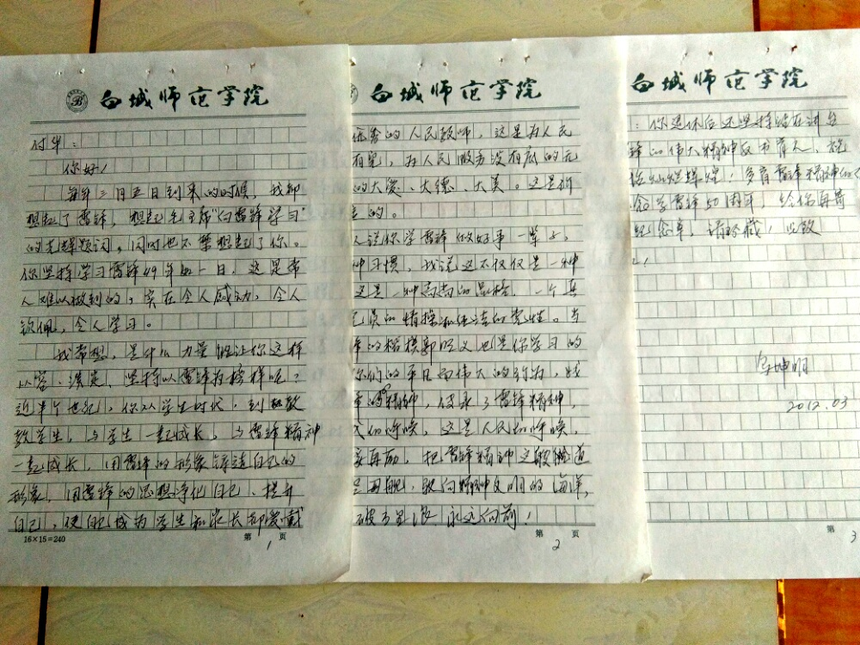 白城师范学院
付华:
你好!
每年三月五日到来的时候,我却
想起了雷锋,想起毛主席"向雷锋学习"
的光辉题词。同时也不禁想起了你。
你坚持学习雷锋49年如一日,这是常
人难以做到的,实在令人感动,令人
钦佩,令人学习。
我常想,是什么力量能让你这样
坚持以雷锋为榜样呢?
近半个世纪,你从学生时代,到
教学生,与学生一起成长,与雷锋精神
一起成长,用雷锋的形象铸造自己的
形象,用雷锋的思想净化自己、提升
自己,使自己成为学生和家长都爱戴
16×15=240
第 1 页
白城师范学院
优秀的人民教师,这是为人民
有笔,为人民服务没有底的无
的大爱、大德、大美。这是新
的。
人说你学雷锋做好事一辈子,
种习惯,我说这不仅仅是一种
这是一种高尚的品格,一个真
的情操和信念的党性。当
年的楷模郭明义也是你学习的
你们的平凡而伟大的行为,
的精神,传承了雷锋精神,
的呼唤,这是人民的呼唤。
再励,把雷锋精神这
再航,驶向精神文明的海洋,
永远向前!
第 2 页
白城师范学院
:你退休后还坚持活在讲台
锋的伟大精神教书育人,
灿烂辉煌,多育雷锋精神的
念学雷锋50周年,给你再寄
纪念章,请珍藏!此致
!
坤明
2012.03
第 3